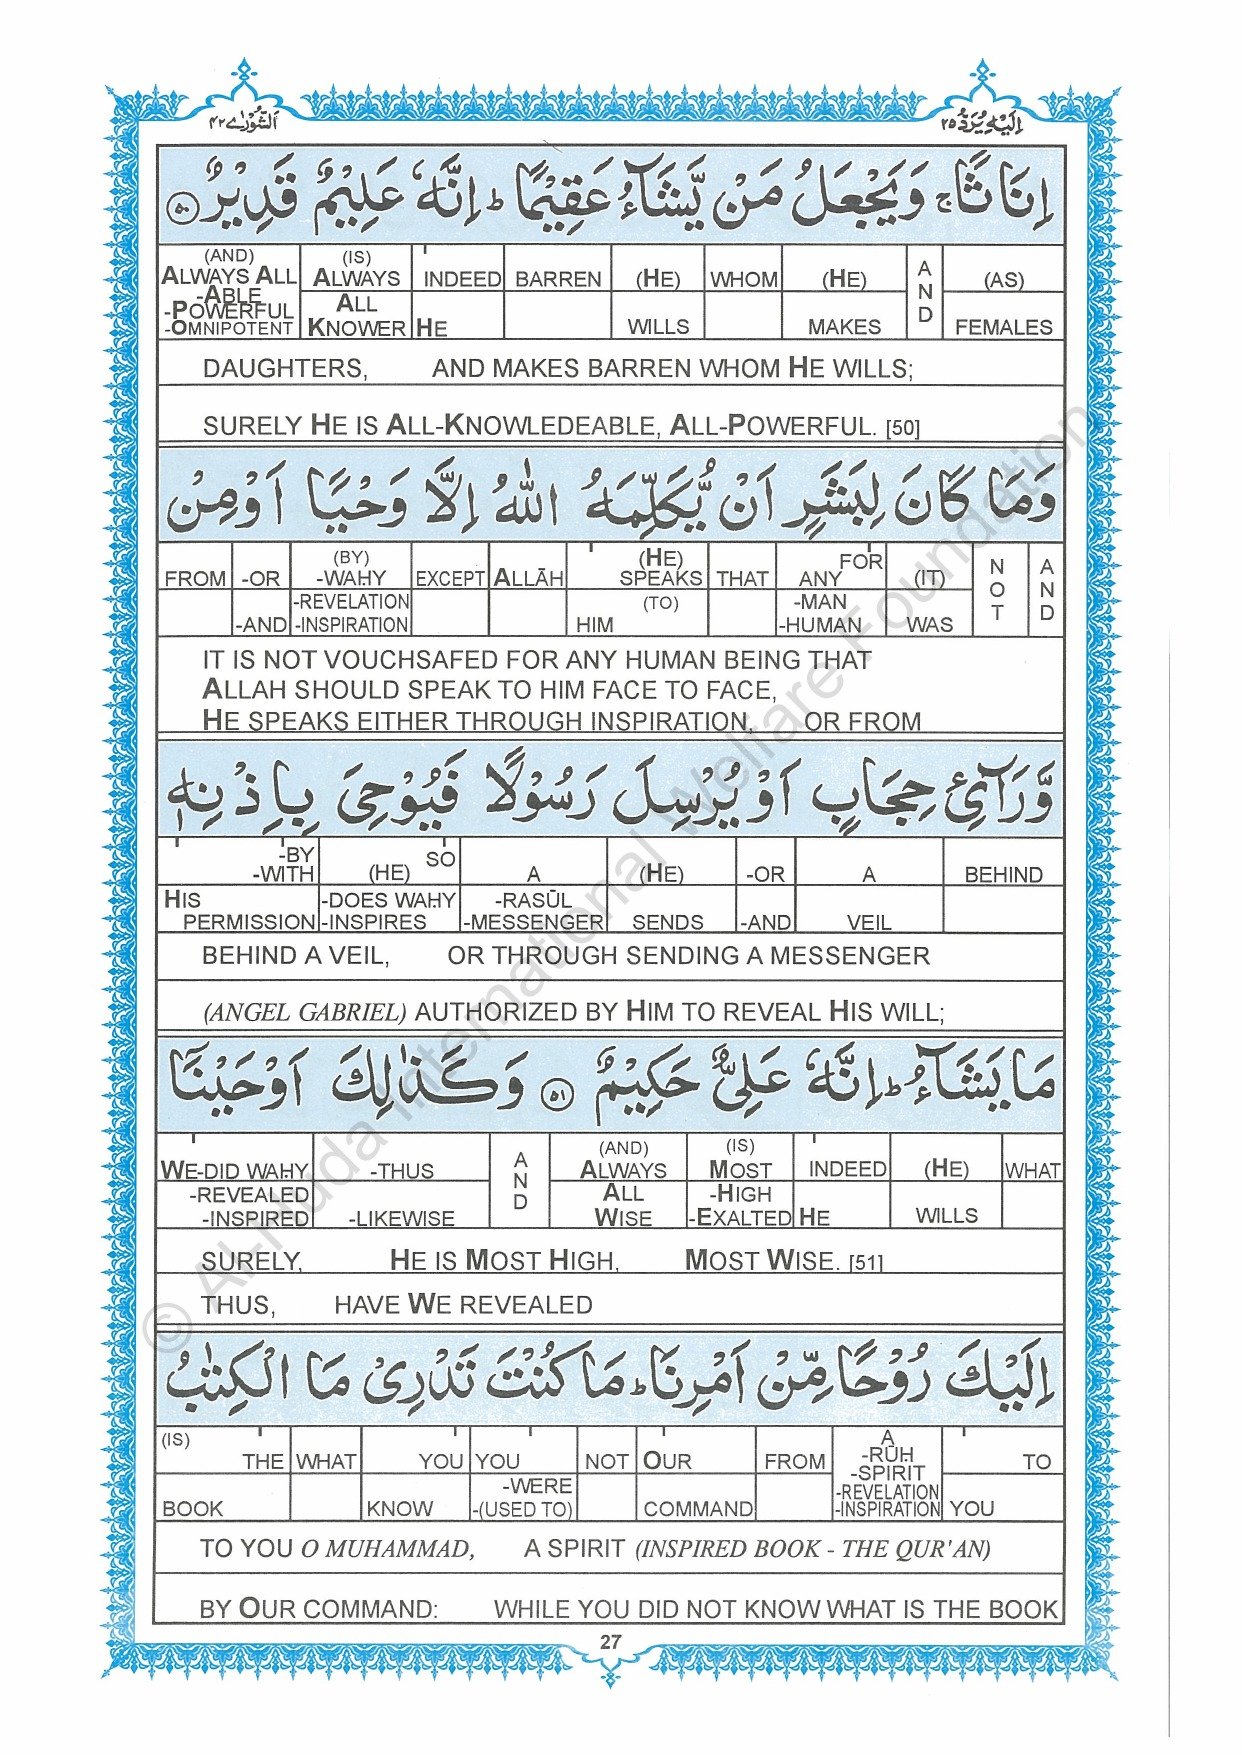 اَلشُّوْرٰى ٤٢
اِلَيْهِ يُرَدُّ ٢٥
اِنَاثًا ۚ وَيَجْعَلُ مَنْ يَّشَآءُ عَقِيْمًا ؕ اِنَّهٗ عَلِيْمٌ قَدِيْرٌ ۝٥٠
(AND) (IS)
ALWAYS ALL ALWAYS INDEED BARREN (HE) WHOM (HE) AND (AS)
-ABLE ALL
-POWERFUL
-OMNIPOTENT KNOWER HE WILLS MAKES FEMALES
DAUGHTERS, AND MAKES BARREN WHOM HE WILLS;
SURELY HE IS ALL-KNOWLEDEABLE, ALL-POWERFUL. [50]
وَمَا كَانَ لِبَشَرٍ اَنْ يُّكَلِّمَهُ اللّٰهُ اِلَّا وَحْيًا اَوْ مِنْ
(BY) (HE) FOR
FROM -OR -WAHY EXCEPT ALLĀH SPEAKS THAT ANY (IT) NOT AND
-REVELATION (TO) -MAN
-AND -INSPIRATION HIM -HUMAN WAS
IT IS NOT VOUCHSAFED FOR ANY HUMAN BEING THAT
ALLAH SHOULD SPEAK TO HIM FACE TO FACE,
HE SPEAKS EITHER THROUGH INSPIRATION, OR FROM
وَّرَآئِ حِجَابٍ اَوْ يُرْسِلَ رَسُوْلًا فَيُوْحِيَ بِاِذْنِهٖ
-BY SO
-WITH (HE) A (HE) -OR A BEHIND
HIS -DOES WAḤY -RASŪL
PERMISSION -INSPIRES -MESSENGER SENDS -AND VEIL
BEHIND A VEIL, OR THROUGH SENDING A MESSENGER
(ANGEL GABRIEL) AUTHORIZED BY HIM TO REVEAL HIS WILL;
مَا يَشَآءُ ؕ اِنَّهٗ عَلِيٌّ حَكِيْمٌ ۝٥١ وَكَذٰلِكَ اَوْحَيْنَآ
(AND) (IS)
WE-DID WAḤY -THUS AND ALWAYS MOST INDEED (HE) WHAT
-REVEALED ALL -HIGH
-INSPIRED -LIKEWISE WISE -EXALTED HE WILLS
SURELY, HE IS MOST HIGH, MOST WISE. [51]
THUS, HAVE WE REVEALED
اِلَيْكَ رُوْحًا مِّنْ اَمْرِنَا ؕ مَا كُنْتَ تَدْرِيْ مَا الْكِتٰبُ
(IS) A
THE WHAT YOU YOU NOT OUR FROM -RŪḤ TO
-SPIRIT
-WERE -REVELATION
BOOK KNOW -(USED TO) COMMAND -INSPIRATION YOU
TO YOU O MUHAMMAD, A SPIRIT (INSPIRED BOOK - THE QUR'AN)
BY OUR COMMAND: WHILE YOU DID NOT KNOW WHAT IS THE BOOK
27
© Al-Huda International Welfare Foundation